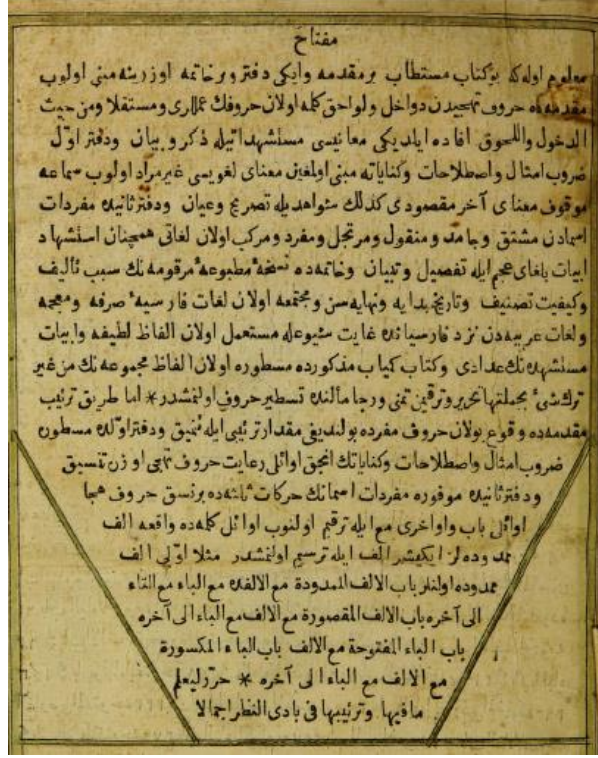 مفتاح
معلوم اوله كه بوكتاب مستطاب برمقدمه وايكى دفتر وبرخاتمه اوزرينه مبنى اولوب
مقدمه ده حروف تهجيدن دواخل ولواحق كلمه اولان حروفك عللارى ومستقلا ومن حيث
الدخول واللحوق افاده ايلديكى معانيسى مستشهداتيله ذكر و بيان ودفتر اوّل
ضروب امثال واصطلاحات وكناياته مبنى اولمغين معناى لغويسى غيرمراد اولوب سماعه
موقوف معناى آخر مقصودى كذلك شواهديله تصريح وعيان ودفتر ثانيده مفردات
اسمادن مشتق وجامد ومنقول ومرتجل ومفرد ومركب اولان لغاتى همچنان استشهاد
ابيات بلغاى عجم ايله تفصيل وتبيان وخاتمه ده نسخهٔ مطبوعهٔ مرقومه نك سبب تأليف
وكيفيت تصنيف وتاريخ بدايه ونهايه سن ومجتمعه اولان لغات فارسيهٔ صرفه ومعجمه
ولغات عربيه دن نزد فارسيانده غايت شيوعله مستعمل اولان الفاظ لطيفه وابيات
مستشهده نك عدادى وكتاب كياب مذكورده مسطوره اولان الفاظ مجموعه نك من غير
ترك شئ بجملتها تحرير وترقين تمنى ورجا مآلنده تسطير حروف اولنمشدر * اما طريق ترتيب
مقدمه ده وقوع بولان حروف مفرده بولنديغى مقدار ترتيبى ايله تنميق ودفتر اوّلده مسطوره
ضروب امثال واصطلاحات وكناياتك انجق اوائلى رعايت حروف تهجى اوزره تنسيق
ودفتر ثانيده موفوره مفردات اسمانك حركات ثلثه ده برنسق حروف هجا
اوائلى باب واواخرى مع ايله ترقيم اولنوب اوائل كلمه ده واقعه الف
ممدوده لر ايكيشر الف ايله ترسيم اولنمشدر مثلا اوّلى الف
ممدوده اولنلر باب الالف الممدودة مع الالفده مع الباء مع التاء
الى آخره باب الالف المقصورة مع الالف مع الباء الى آخره
باب الباء المفتوحة مع الالف باب الباء المكسورة
مع الالف مع الباء الى آخره * حرّر ليعلم
مافيها وترتيبها فى بادى النظر اجمالا